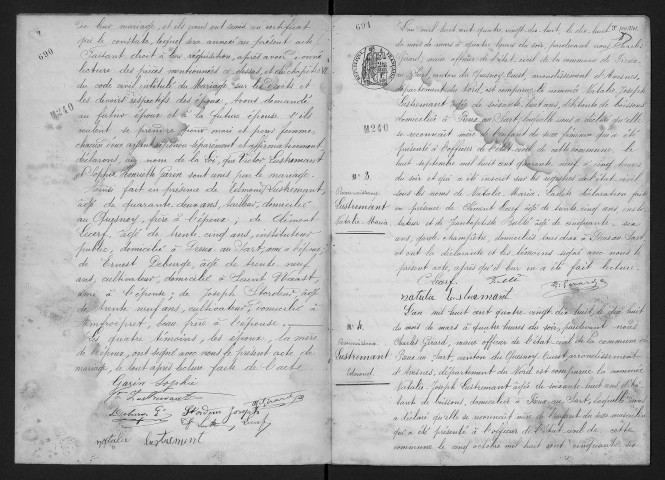 690
de leur mariage, et ils nous ont remis un certificat
qui le constate, lequel sera annexé au présent acte.
Faisant droit à leur réquisition, après avoir donné
lecture des pièces mentionnées ci-dessus, et du chapitre VI
du code civil intitulé du Mariage sur les droits et
les devoirs respectifs des époux. Avons demandé
M240
au futur époux et à la future épouse s'ils
veulent se prendre pour mari et pour femme,
chacun d'eux ayant répondu séparément et affirmativement
déclarons, au nom de la loi, que Victor Lestremant
et Sophie Henriette Garin sont unis par le mariage.
Ainsi fait en présence de Edmond Lestremant,
âgé de quarante deux ans, tailleur, domicilié
au Quesnoy, frère à l'époux; de Clément
Lecerf, âgé de trente cinq ans, instituteur
public, domicilié à Preux au Sart, ami à l'époux;
de Ernest Deharge, âgé de trente neuf
ans, cultivateur, domicilié à Saint Waast,
ami à l'épouse; de Joseph Stordeur, âgé
de trente neuf ans, cultivateur, domicilié à
, beau frère à l'épouse.
Les quatre témoins, les époux, la mère
de l'époux, ont signé avec nous le présent acte de
mariage, le tout après lecture faite de l'acte.
Garin Sophie
Lestremant
Stordeur Joseph
Lecerf
natalie lestremant
691
L'an mil huit cent quatre vingt dix huit, le dix huit
du mois de mars à quatre heures du soir, pardevant nous Charles
Girard, maire officier de l'Etat civil de la commune de Preux
au Sart, canton du Quesnoy Ouest, arrondissement d'Avesnes,
département du Nord, est comparue la nommée Natalie Joseph
Lestremant âgée de soixante huit ans, débitante de boissons
domiciliée à Preux au Sart, laquelle nous a déclaré qu'elle
M240
se reconnaît mère de l'enfant du sexe féminin qui a été
présenté à l'officier de l'Etat civil de cette commune, le
huit septembre mil huit cent quarante neuf à cinq heures
N° 3
du soir et qui a été inscrit sur les registres de l'état civil
Reconnaissance
sous les noms de Natalie Maria. Ladite déclaration fait
Lestremant
en présence de Clément Lecerf âgé de trente cinq ans, insti-
Natalie Maria
tuteur et de Jean Baptiste âgé de cinquante
ans, garde champêtre, domiciliés tous deux à Preux au Sart
et ont la déclarante et les témoins signé avec nous le
présent acte, après qu'il leur en a été fait lecture.
Lecerf
natalie lestremant
N° 4
L'an mil huit cent quatre vingt dix huit, le dix huit
du mois de mars à quatre heures du soir, pardevant nous
Reconnaissance
Charles Girard, maire officier de l'Etat civil de la commune de
Lestremant
Preux au Sart, canton du Quesnoy Ouest, arrondissement
Edmond
d'Avesnes, département du Nord est comparue la nommée
Natalie Joseph Lestremant âgée de soixante huit ans, débi-
tante de boissons, domiciliée à Preux au Sart, laquelle nous a
déclaré qu'elle se reconnaît mère de l'enfant du sexe masculin
qui a été présenté à l'officier de l'Etat civil de cette
commune le cinq octobre mil huit cent cinquante